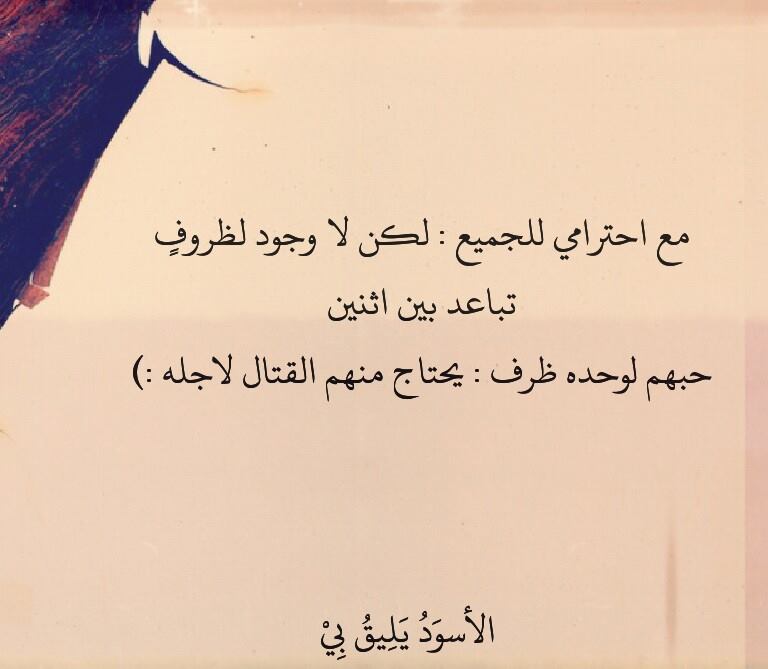 مع احترامي للجميع : لكن لا وجود لظروفٍ
تباعد بين اثنين
حبهم لوحده ظرف : يحتاج منهم القتال لاجله :)
الأسوَدُ يَلِيقُ بِيْ